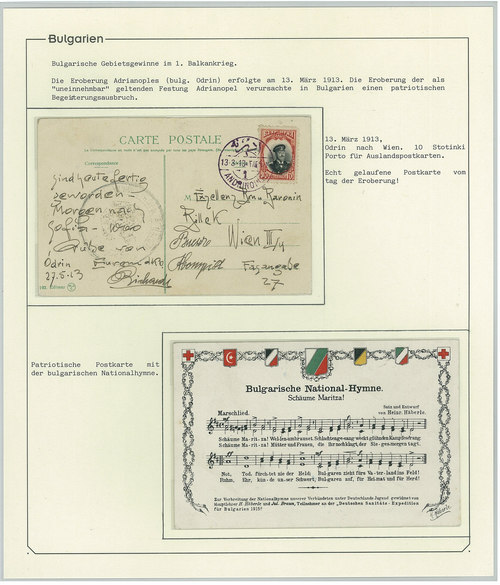 Bulgarien
Bulgarische Gebietsgewinne im 1. Balkankrieg.
Die Eroberung Adrianoples (bulg. Odrin) erfolgte am 13. März 1913. Die Eroberung der als
"uneinnehmbar" geltenden Festung Adrianopel verursachte in Bulgarien einen patriotischen
Begeisterungsausbruch.
CARTE POSTALE
Correspondance
sind heute fertig
geworden -
Morgen nach
Sofia - Wien
Grüße von
Odrin
27.5.13
Exzellenz Frau Baronin
Wien III/4
27
13. März 1913,
Odrin nach Wien. 10 Stotinki
Porto für Auslandspostkarten.
Echt gelaufene Postkarte vom
tag der Eroberung!
Patriotische Postkarte mit
der bulgarischen Nationalhymne.
Bulgarische National-Hymne.
Schäume Maritza!
Satz und Entwurf
von Heinr. Häberle.
Marschlied.
Schäume Ma-ri-tza! Wehlen umbrauset, Schlachtenge-sang weckt glühnden Kampfesdrang.
Schäume Ma-ri-tza! Mütter und Frauen, die
Not, Tod, fürch-tet nie der Held: Bul-garen zieht fürs Va-ter-land ins Feld!
Ruhm, Ehr, kün-de un-ser Schwert; Bul-garen auf, für Hei-mat und für Herd!
Zur Verbreitung der Nationalhymne unserer Verbündeten unter Deutschlands Jugend gewidmet von
Hauptlehrer H. Häberle und Jul. Braun, Teilnehmer an der „Deutschen Sanitäts-Expedition
für Bulgarien 1915"